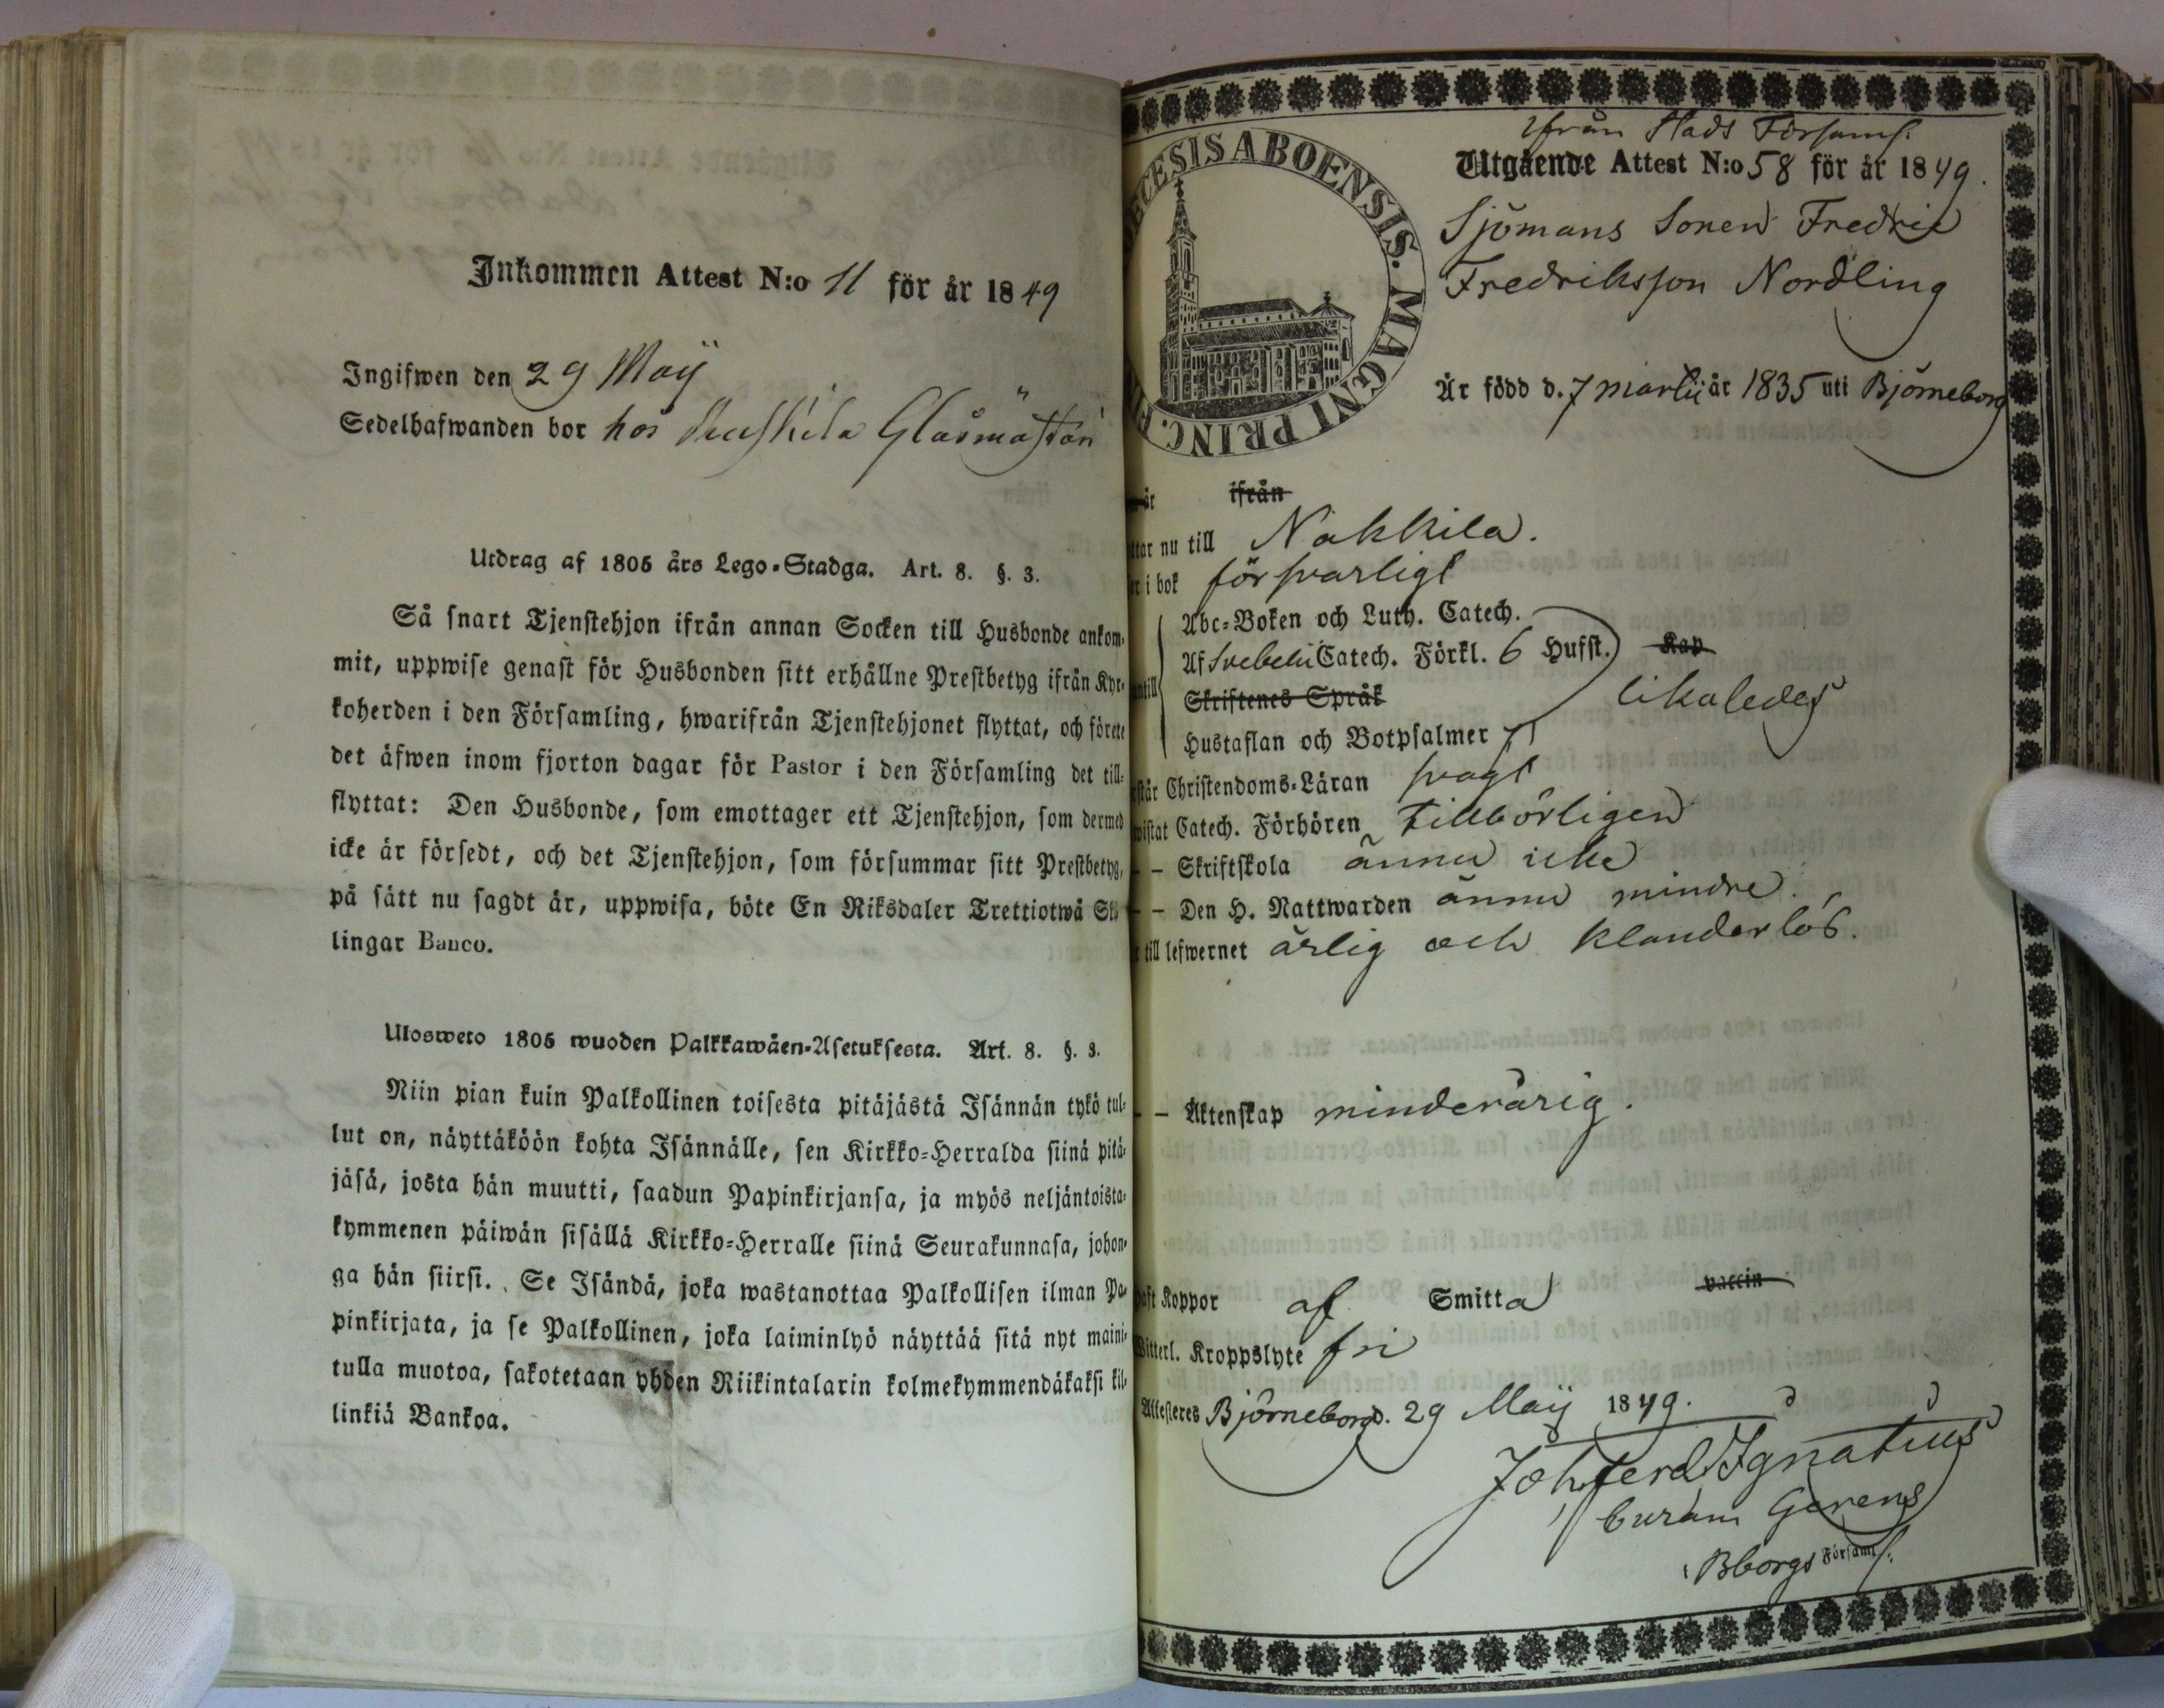 Inkommen Attest N:o 11 för år 1849
Ingifwen den 29 Maÿ
Sedelhafwanden bor hos Glasmästan
Utdrag af 1805 års Lego-Stadga. Art. 8. §. 3.
Så snart Tjenstehjon ifrån annan Socken till Husbonde ankom-
mit, uppwise genast för Husbonden sitt erhållne Prestbetyg ifrån Kyr-
koherden i den Församling, hwarifrån Tjenstehjonet flyttat, och förete
det äfwen inom fjorton dagar för Pastor i den Församling det till-
flyttat: Den Husbonde, som emottager ett Tjenstehjon, som dermed
icke är försedt, och det Tjenstehjon, som försummar sitt Prestbetyg,
på sätt nu sagdt är, uppwisa, böte En Riksdaler Trettiotwå Ski
lingar Banco.
Ulosweto 1805 wuoden Palkkawäen-Asetuksesta. Art. 8. §. 3.
Niin pian kuin Palkollinen toisesta pitäjästä Isännän tykö tul-
lut on, näyttäköön kohta Isännälle, sen Kirkko-Herralda siinä pitä-
jäsä, josta hän muutti, saadun Papinkirjansa, ja myös neljäntoista-
kymmenen päiwän sisällä Kirkko-Herralle siinä Seurakunnasa, johon-
ga hän siirsi. Se Isändä, joka wastanottaa Palkollisen ilman Pa-
pinkirjata, ja se Palkollinen, joka laiminlyö näyttää sitä nyt maini-
tulla muotoa, sakotetaan yhden Riikintalarin kolmekymmendäkaksi kil-
linkiä Bankoa.
ŒCESIS ABOENSIS. MAGNI PRINC.
ifrån Stads Församl.
Utgående Attest N:o 58 för år 1849.
Sjömans Sonen Fredric
Fredriksson Nordling
Är född d. 7 martii år 1835 uti Björneborg
år ifrån
ttar nu till Nakkila.
r i bok försvarligt
Abc-Boken och Luth. Catech.
Af Svebelii Catech. Förkl. 6 Hufst. Kap
ntill Skriftenes Språk likaledes
Hustaflan och Botpsalmer 7
står Christendoms-Läran svagt
wistat Catech. Förhören tillbörligen
- - Skriftskola ännu icke
- - Den H. Nattwarden ännu mindre.
till lefwernet ärlig och klanderlös.
- - Äktenskap minderårig.
haft Koppor af Smitta vaccin
Witterl. Kroppslyte fri
Attesteres Björneborg d. 29 Maÿ 1849.
Joh Ferd Ignatius
Curam Gerens
i Bborgs Församl.